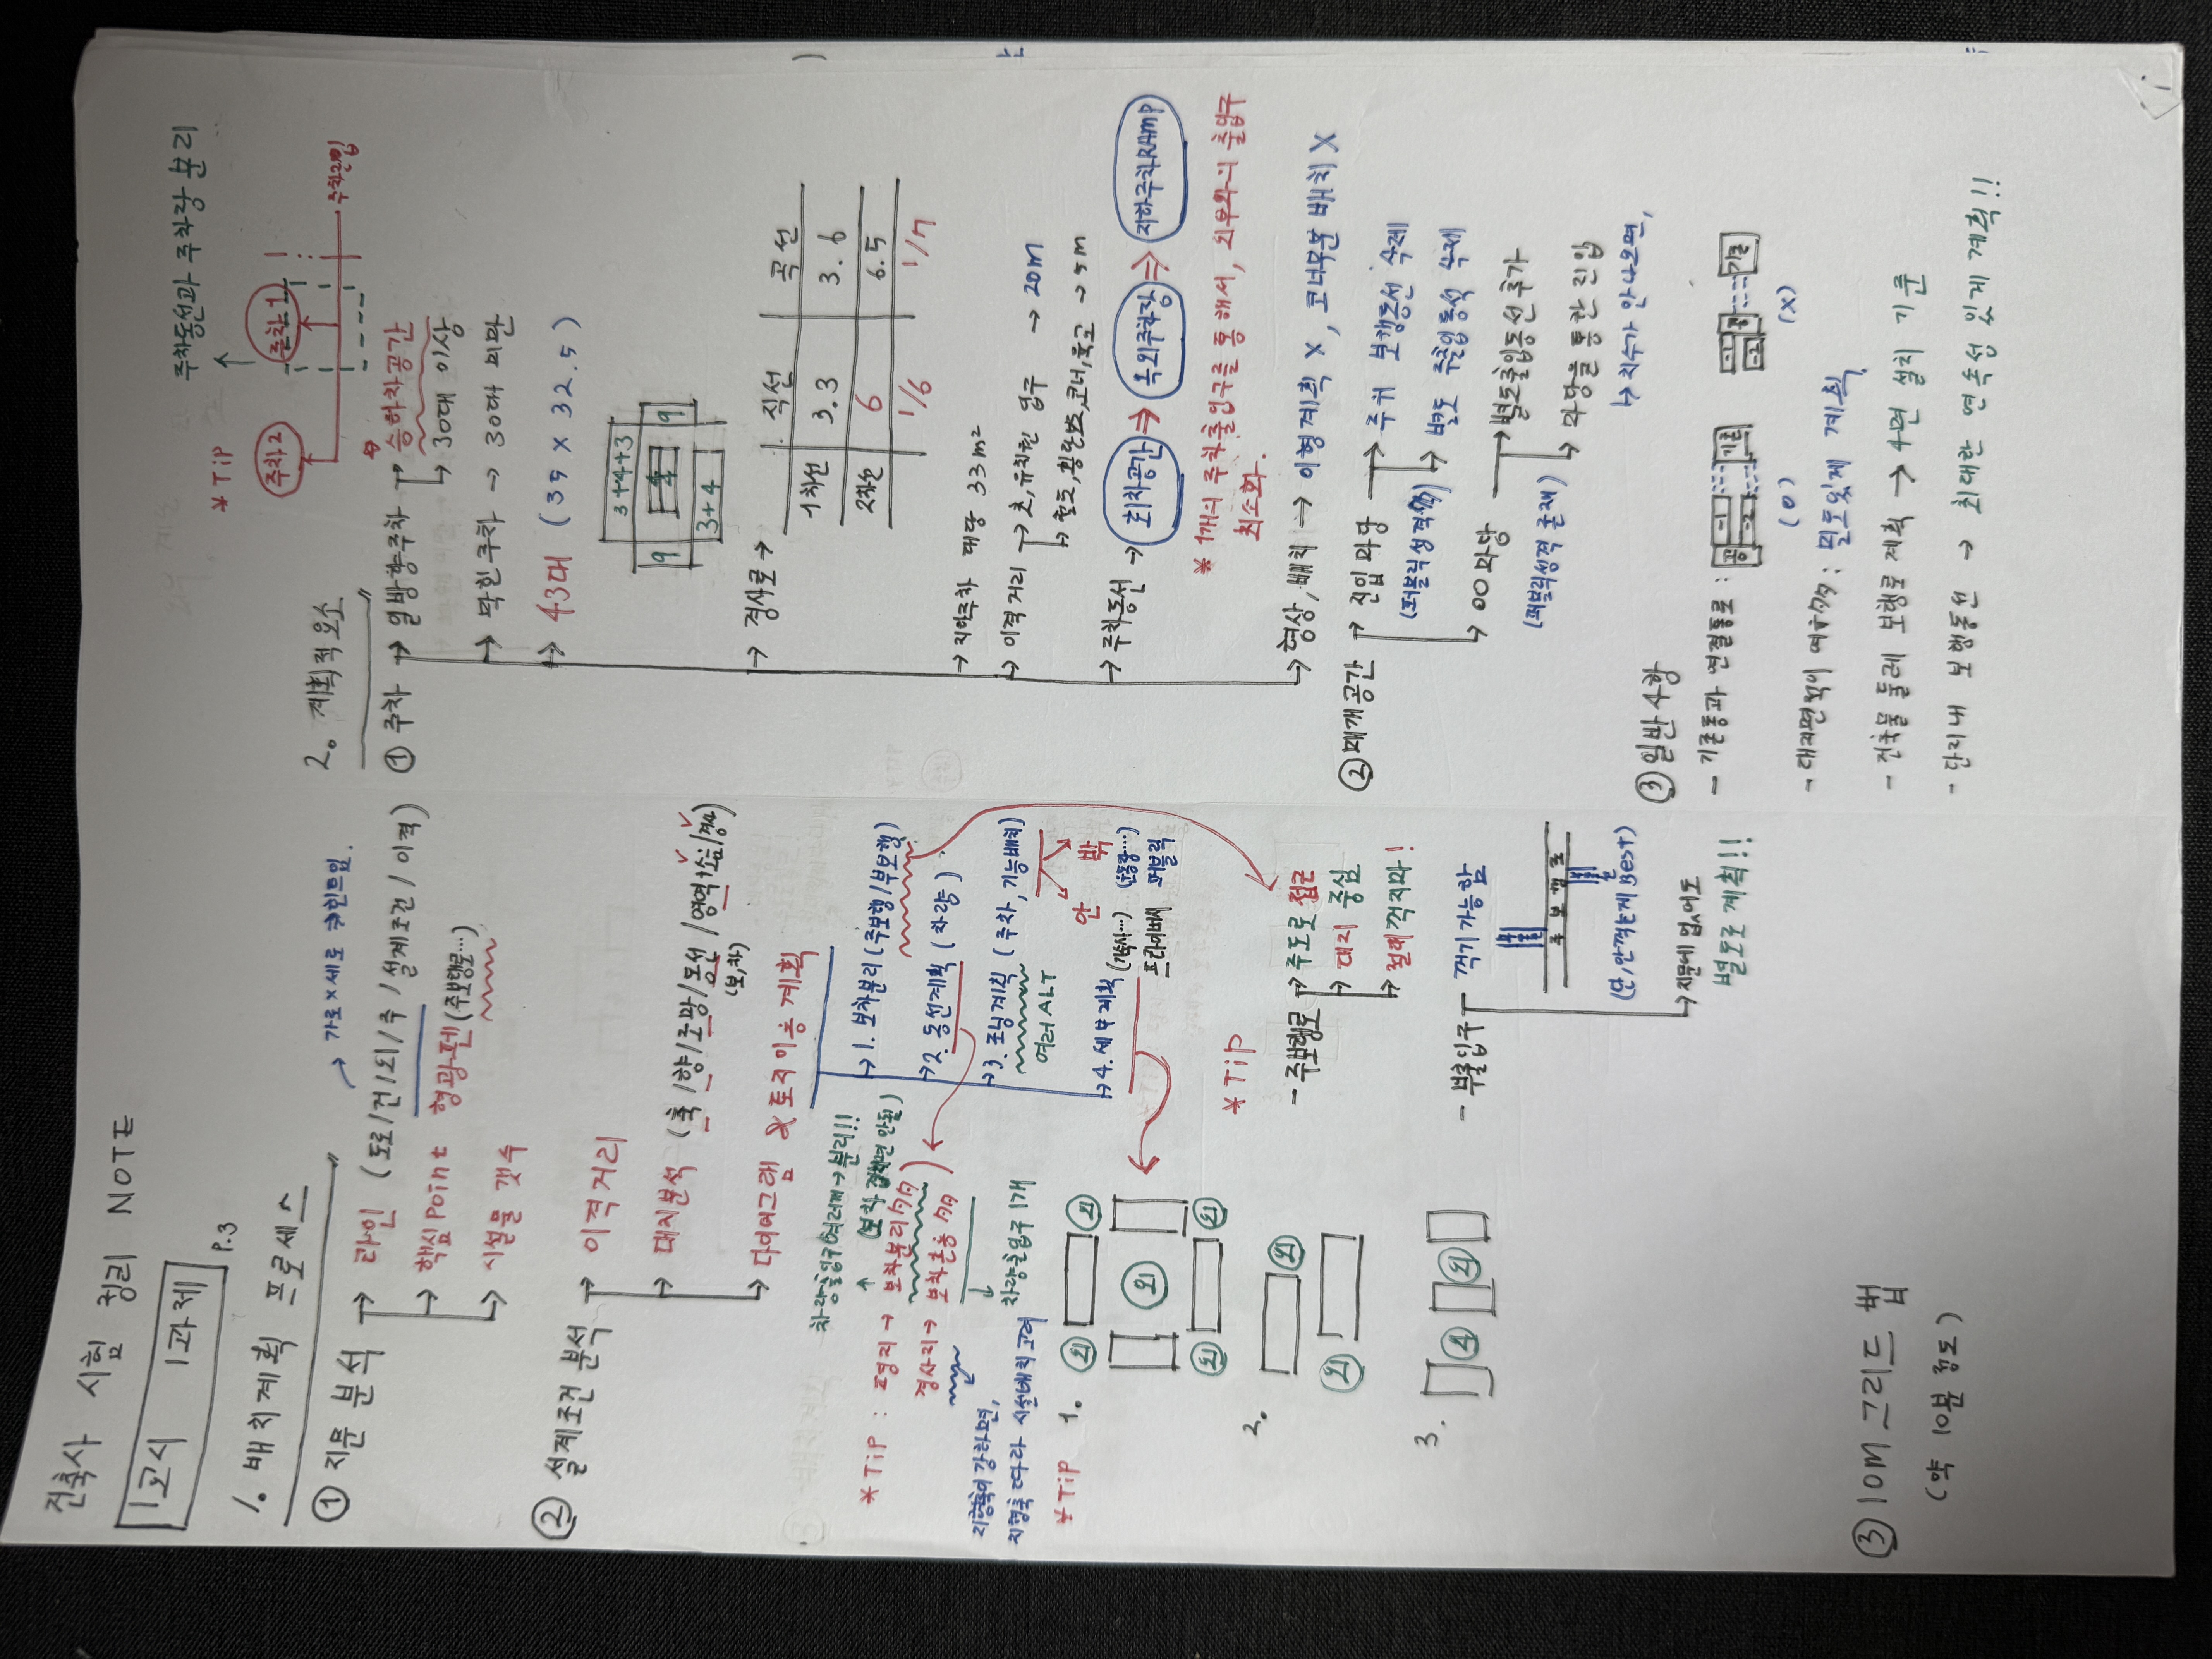 건축사 시험 정리 NOTE
1교시 1과제
P.3
1. 배치계획 프로세스
① 지문 분석
→ 라인 (도로/건/외/주/설계조건/이격)
→ 가로×세로
→ 핵심Point 형광펜 (주보행로...)
→ 시설물 갯수
② 설계조건 분석
→ 이격거리
→ 대지분석 (축/향/조망/동선/영역+소음/경사)
(보,차)
→ 다이어그램 & 토지이용 계획
→ 1. 보차분리 (주보행/부보행)
→ 2. 동선계획 (차량)
→ 3. 조닝계획 (주차, 기능배치)
여러 ALT
안 밖
→ 4. 세부계획
(기숙사...) (운동장...)
프라이버시 퍼블릭
차량출입구 여러개 → 분리!!
* TIP : 평지 → 보차분리
경사지 → 보차혼용
차량출입구 1개
지형축이 강하면,
지형축 따라 시설배치 고려
* TIP 1.
외 외
외
외 외
2.
외
외
3.
외 외
* TIP
- 주보행로 → 주도로 접근
→ 대지 중심
→ 절대 꺽지마!
- 부출입구 → 꺽기 가능함
주보행로
(단, 안꺽는게 Best)
→ 지문에 없어도
별도로 계획!!
③ 10M 그리드 법
(약 10분 정도)
2. 계획적 요소
* TIP
주차동선과 주차장 분리
주차2
주차1
주차진입
① 주차 → 일방향주차 → 승하차공간
→ 30대 이상
→ 막힌주차 → 30대 미만
→ 43대 (35 × 32.5)
3+4+3
9 9
3+4
→ 경사로 →
직선 곡선
1차선 3.3 3.6
2차선 6 6.5
1/6 1/7
→ 지하주차 대당 33m²
→ 이격거리 → 초,유치원 입구 → 20m
→ 횡단보도,코너,육교 → 5m
→ 주차동선 → 회차공간 ⇒ 옥외주차장 ⇒ 지하주차RAMP
* 1개의 주차출입구를 통해서, 외부와의 출입구
최소화.
→ 형상, 배치 → 이형계획 X, 코너부분 배치 X
② 매개공간 → 진입마당 → 주위 보행동선 삭제
→ 별도 주출입동선 삭제
→ 00마당 → 별도출입동선 추가
(퍼블릭성격 존재) → 마당을 통한 진입
↳ 치수가 안나오면,
③ 일반사항
- 기존동과 연결통로 :
(O) (X)
- 대지면적이 여유 : 밀도있게 계획
- 건축물 둘레 보행로 계획 → 4면 설치 기준
- 단지내 보행동선 → 최대한 연속성 있게 계획!!